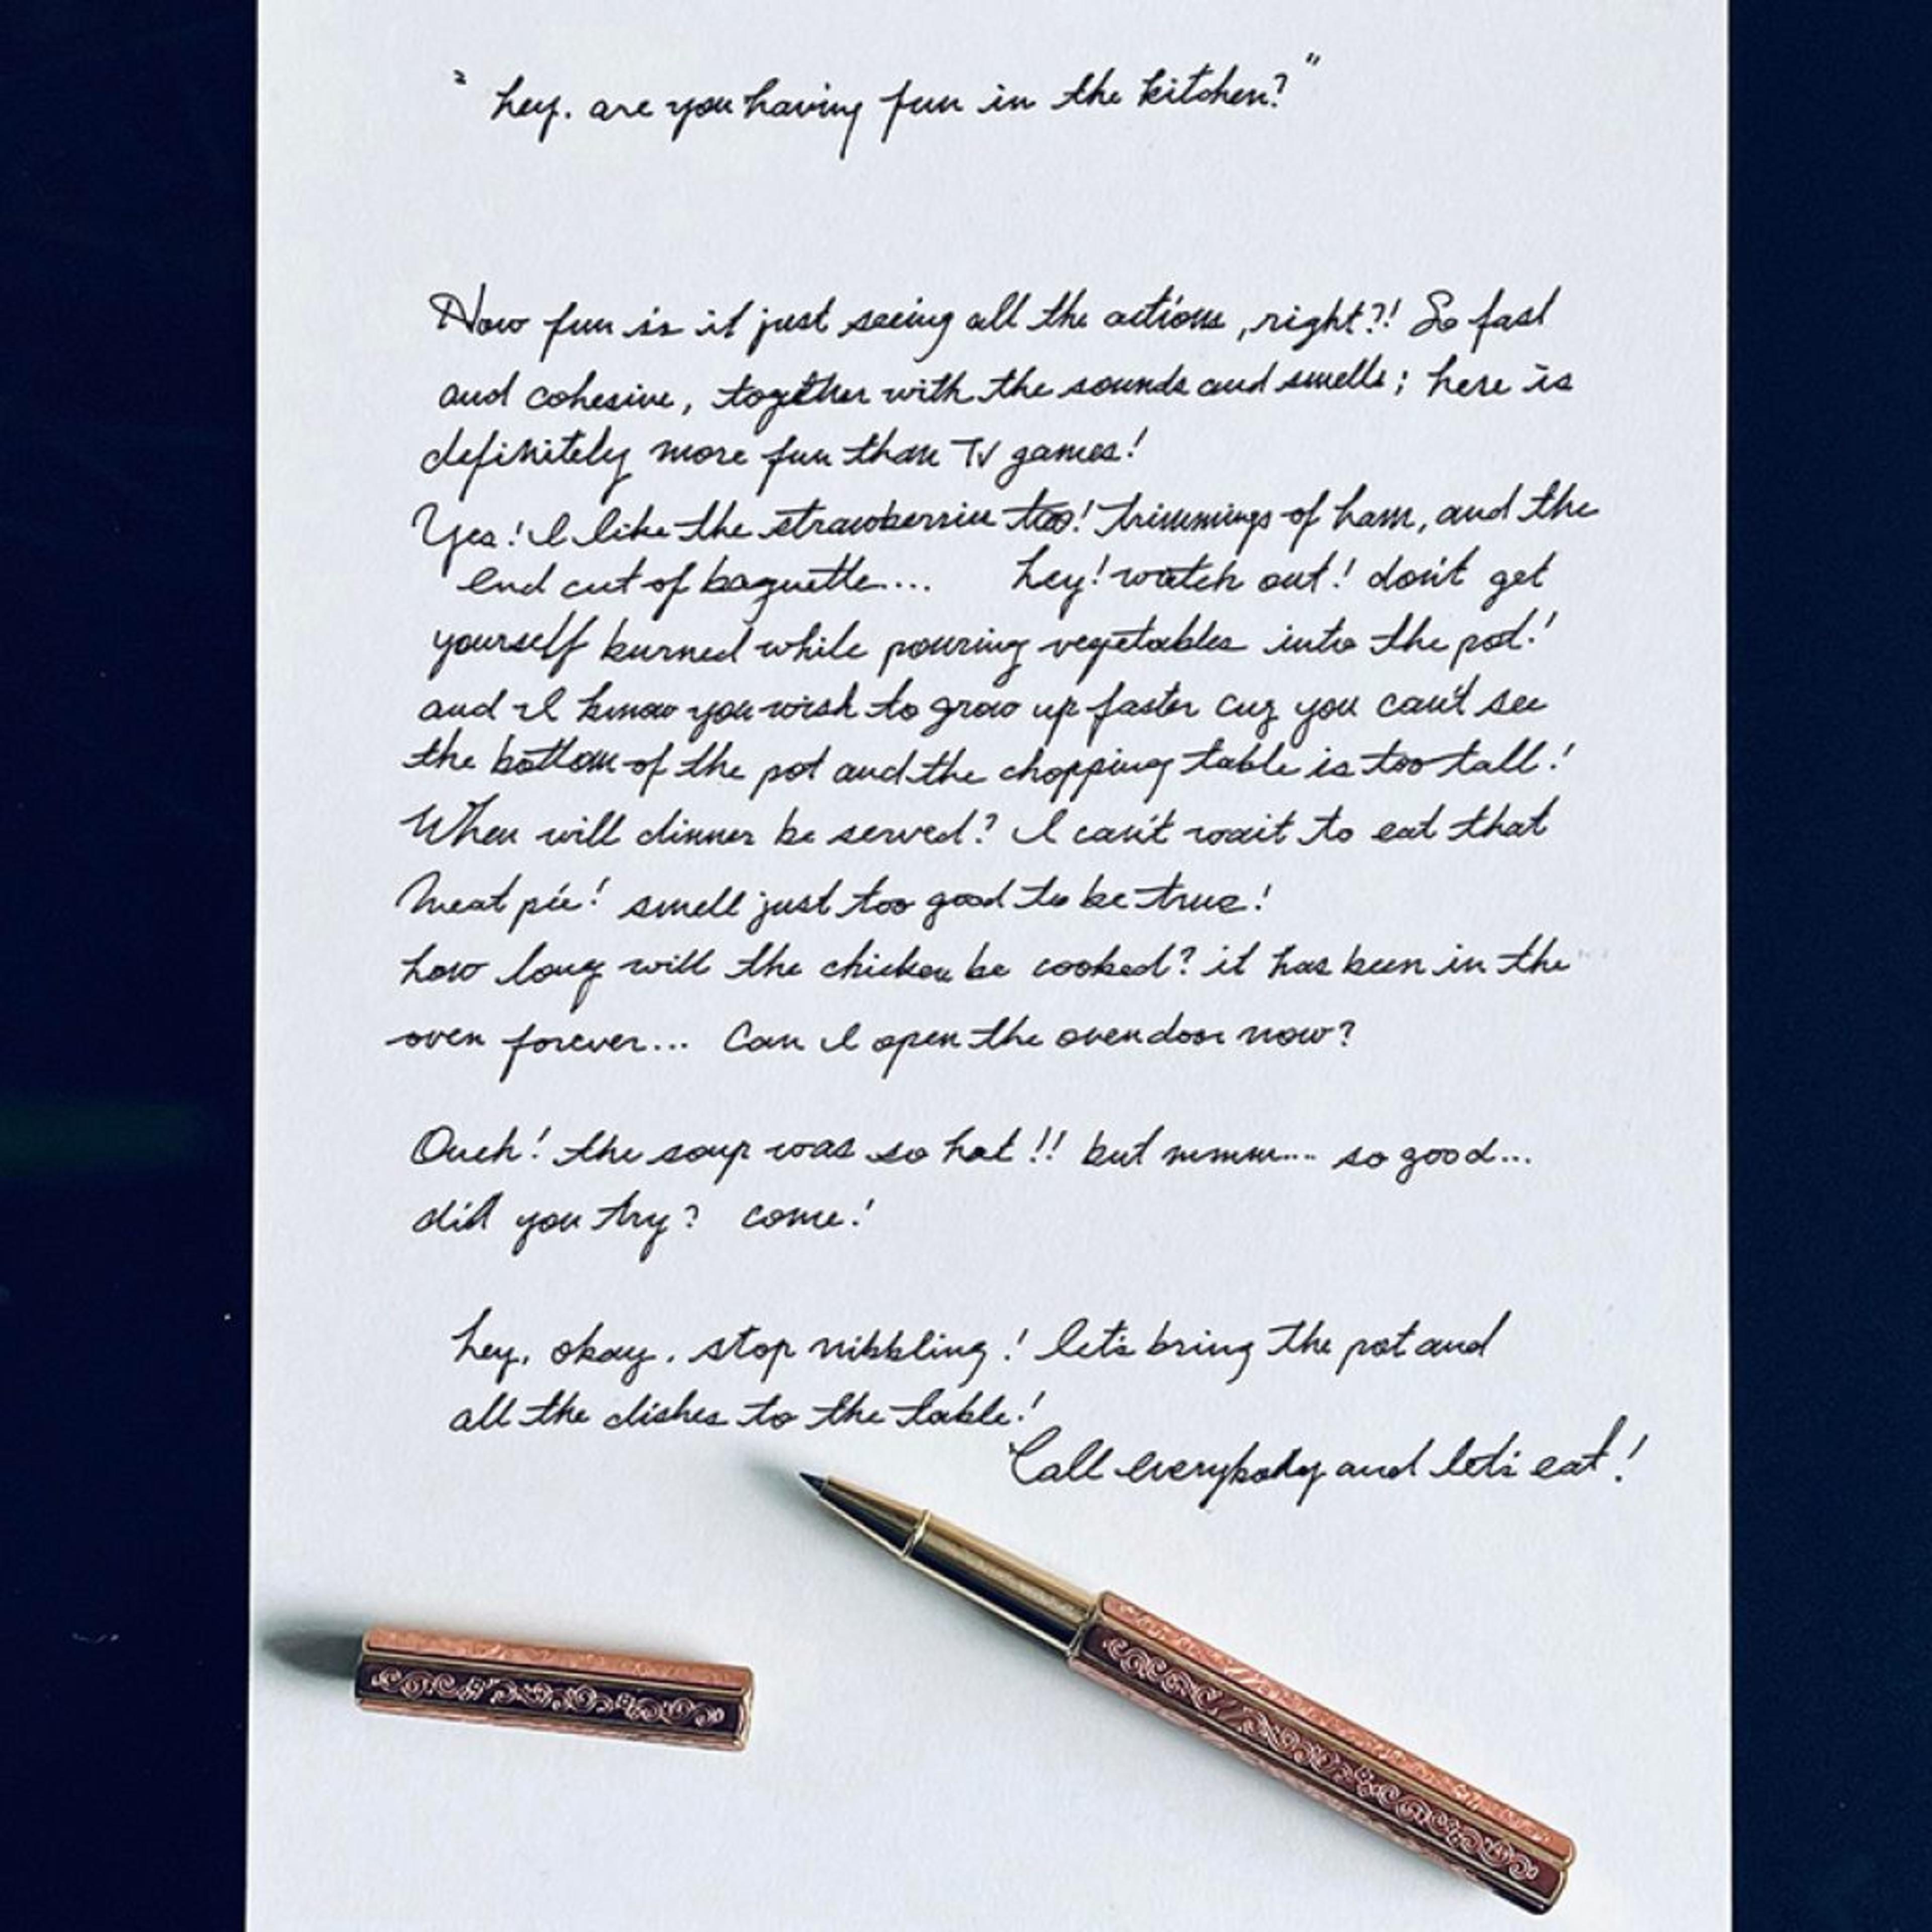 "hey. are you having fun in the kitchen?"
How fun is it just seeing all the actions, right?! So fast
and cohesive, together with the sounds and smells; here is
definitely more fun than TV games!
Yes! I like the strawberries too! trimmings of ham, and the
end cut of baguette.... hey! watch out! don't get
yourself burned while pouring vegetables into the pot!
and I know you wish to grow up faster cuz you can't see
the bottom of the pot and the chopping table is too tall!
When will dinner be served? I can't wait to eat that
meat pie! smell just too good to be true!
how long will the chicken be cooked? it has been in the
oven forever... Can I open the oven door now?
Ouch! the soup was so hot!! but mmmm.... so good...
did you try? come!
hey, okay, stop nibbling! let's bring the pot and
all the dishes to the table!
Call everybody and let's eat!